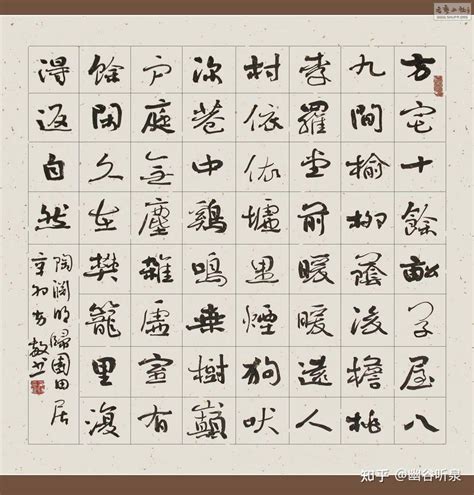 方宅十餘畝草屋八
九間榆柳蔭後檐桃
李羅堂前暖暖遠人
村依依墟里煙狗吠
深巷中鷄鳴桑樹巔
户庭無塵雜虛室有
餘閑久在樊籠里復
得返自然
陶淵明歸園田居
知乎 @幽谷听泉